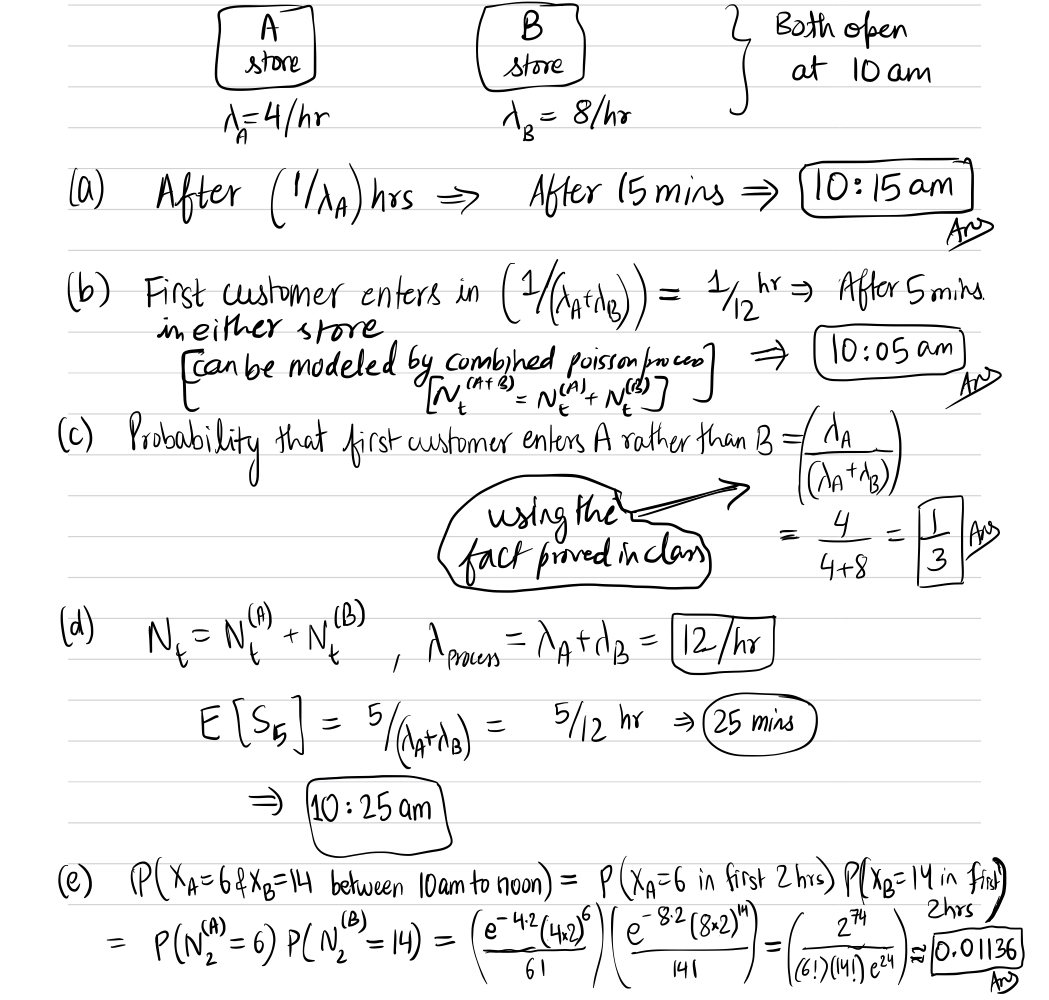 A store B store } Both open at 10 am
λ_A=4/hr λ_B = 8/hr
(a) After (1/λ_A) hrs ⇒ After 15 mins ⇒ 10:15 am
Ans
(b) First customer enters in (1/(λ_A+λ_B)) = 1/12 hr ⇒ After 5 mins.
in either store
[can be modeled by combined poisson process] ⇒ 10:05 am
[N_t^(A+B) = N_t^(A) + N_t^(B)] Ans
(c) Probability that first customer enters A rather than B = (λ_A/(λ_A+λ_B))
using the fact proved in class
= 4/(4+8) = 1/3 Ans
(d) N_t = N_t^(A) + N_t^(B) , λ_process = λ_A+λ_B = 12/hr
E[S_5] = 5/(λ_A+λ_B) = 5/12 hr ⇒ 25 mins
⇒ 10:25 am
(e) P(X_A=6 & X_B=14 between 10am to noon) = P(X_A=6 in first 2 hrs) P(X_B=14 in first 2hrs)
= P(N_2^(A) = 6) P(N_2^(B) = 14) = (e^-4·2 (4×2)^6 / 6!) (e^-8·2 (8×2)^14 / 14!) = (2^74 / (6!)(14!) e^24) ≈ 0.01136
Ans